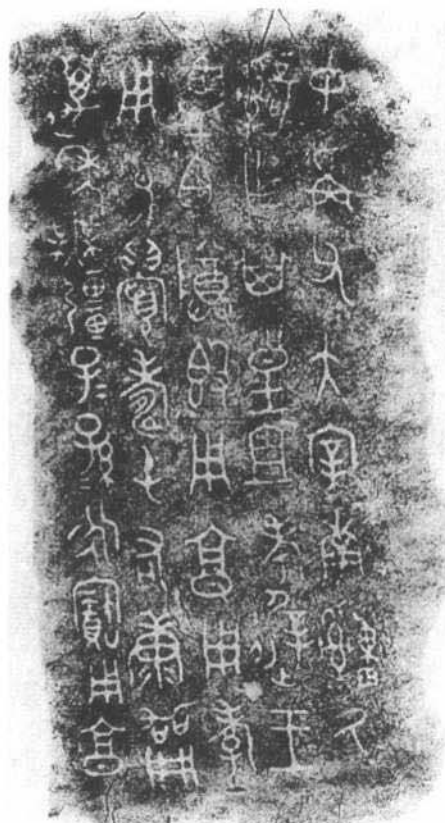 中爯父大宰南𤕌厥
辭乍其皇且考遟王
監白尊簋用享用孝
用易眉壽屯右康
萬年無疆子=孫=永寶用享